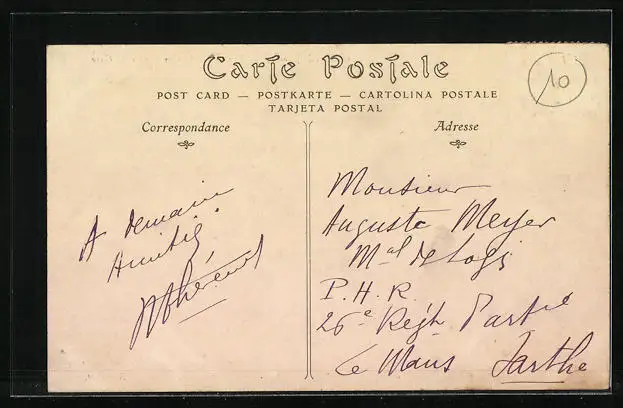 Carte Postale
10
POST CARD — POSTKARTE — CARTOLINA POSTALE
TARJETA POSTAL
Correspondance
Adresse
A demain
Amitié.
Monsieur
Auguste Meyer
Mal des Logis
P. H. R.
26e Régt
Le Mans Sarthe